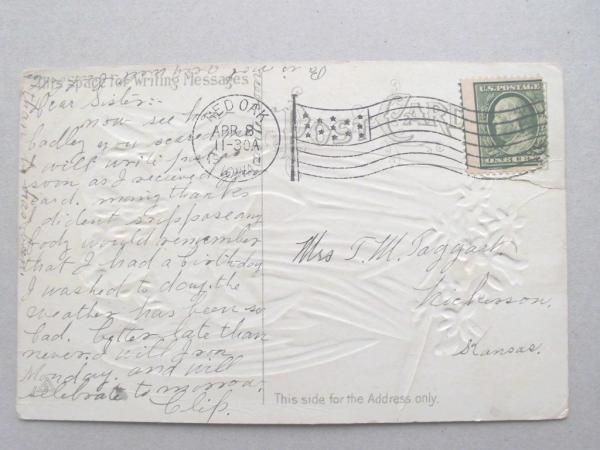 This Space for Writing Messages
Dear Sister:-
now see how
badley you scared me
I will write just
soon as I recieved your
card. many thanks
dident suppose any
body would remember
that I had a birthday
I washed to day the
weather has been so
bad. better late than
never. I will
Monday. and will
celebrate to morrow.
RED OAK
APR 8
11-30A
IOWA
POST CARD
U.S. POSTAGE
Mrs T. M. Taggast.
Nickerson.
Kansas.
This side for the Address only.